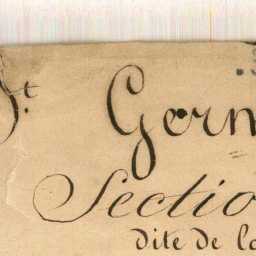 St Germ
Sectio
dite de la